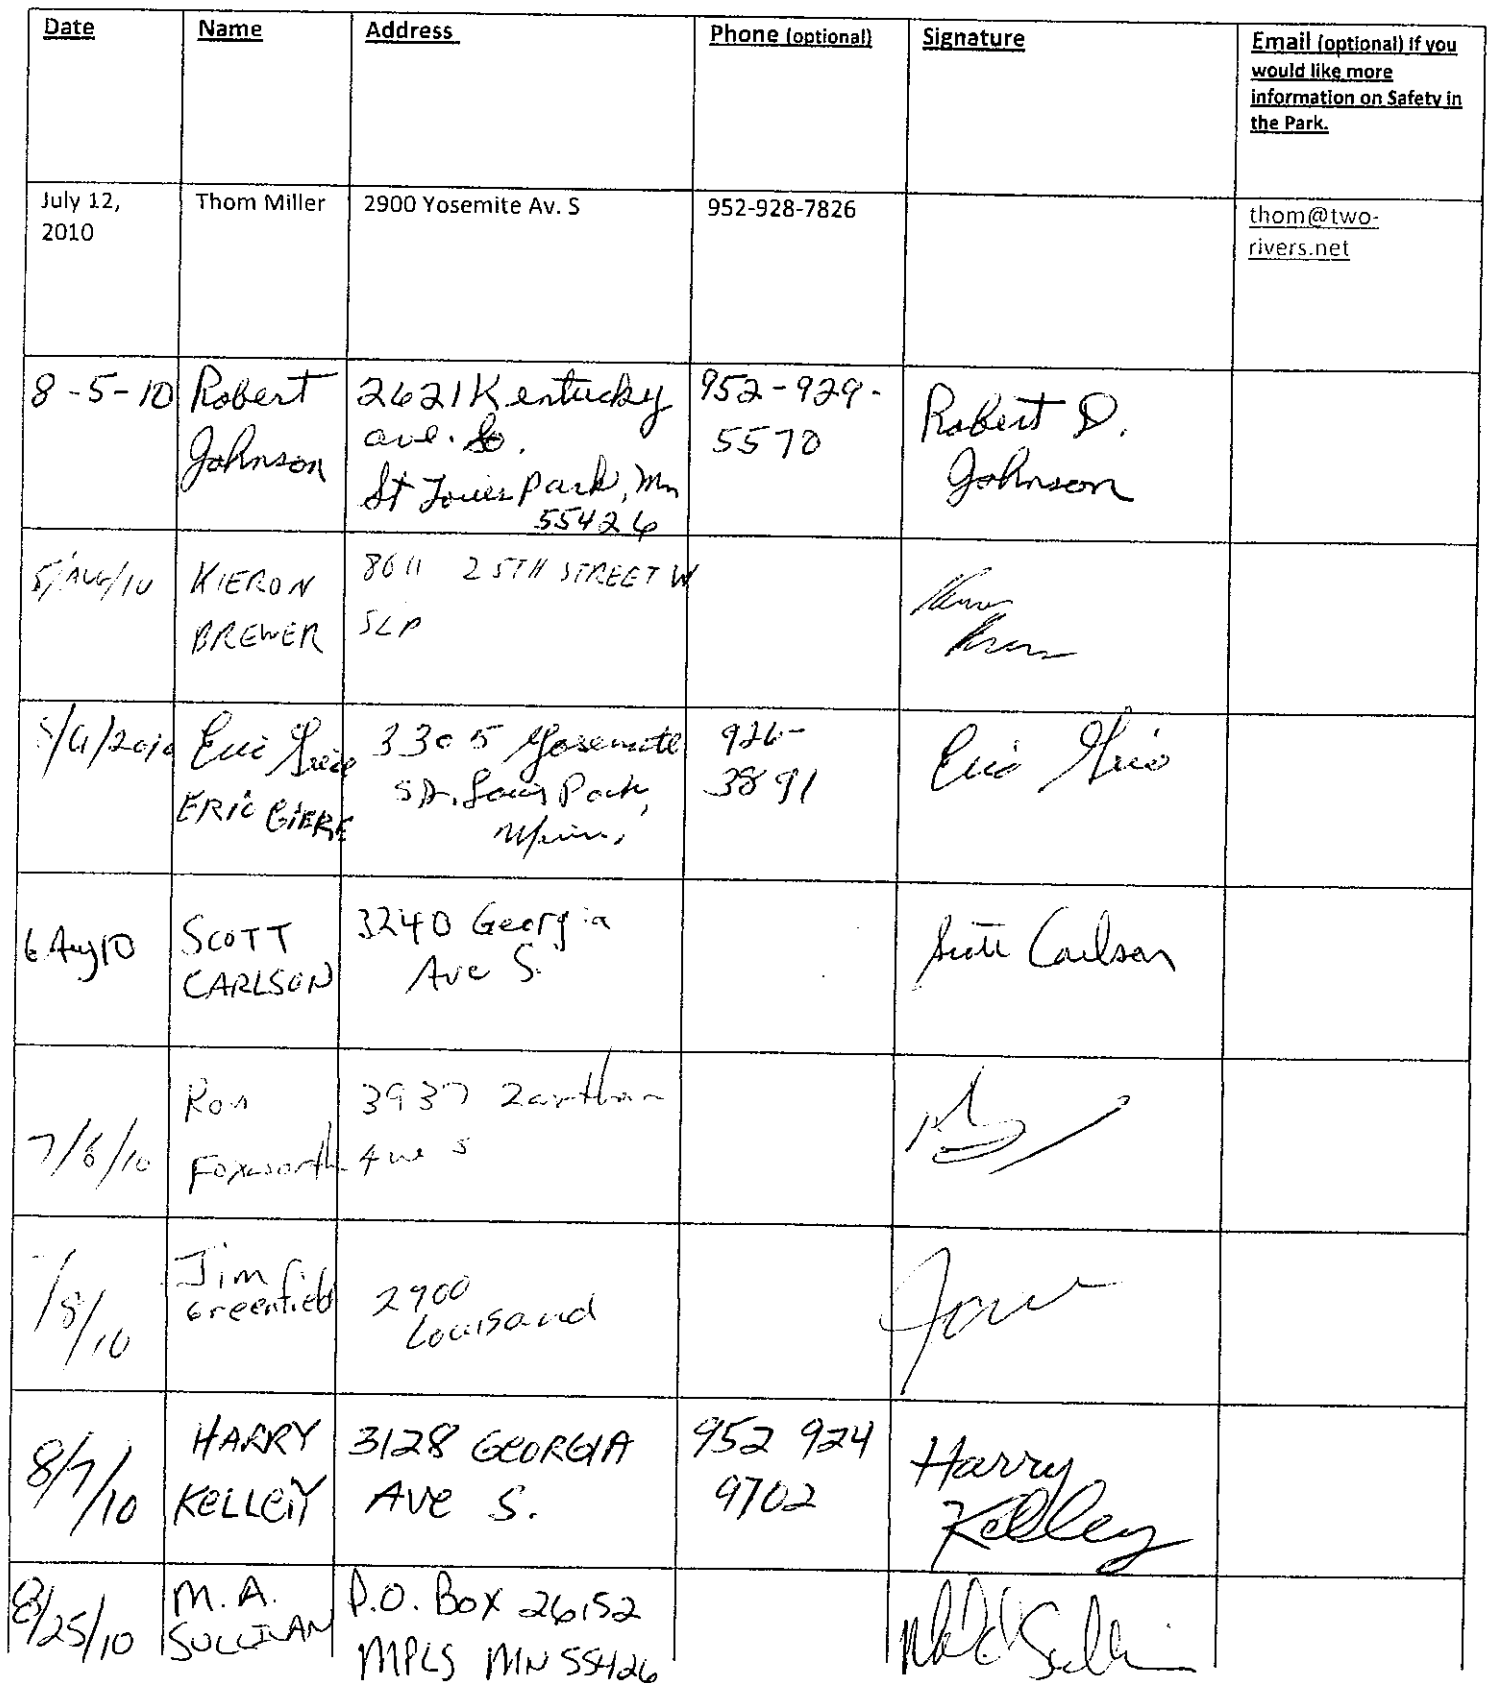 Date
Name
Address
Phone (optional)
Signature
Email (optional) if you
would like more
information on Safety in
the Park.
July 12,
2010
Thom Miller
2900 Yosemite Av. S
952-928-7826
thom@two-
rivers.net
8-5-10
Robert
Johnson
2621 Kentucky
ave. So.
St Louis Park, Mn
55426
952-929-
5570
Robert D.
Johnson
5/AUG/10
KIERON
BREWER
8011 25TH STREET W
SLP
Eric
ERIC GIERE
3305 Yosemite
St. Louis Park,
Minn.
926-
3891
Eric
6 Aug 10
SCOTT
CARLSON
3240 Georgia
Ave S.
Scott Carlson
7/8/10
Ron
Foxworth
3937 Zarthan
Ave S
/8/10
Jim
Greenfield
2900
Louisand
8/7/10
HARRY
KELLEY
3128 GEORGIA
AVE S.
952 924
9702
Harry
Kelley
8/25/10
M. A.
SULLIVAN
P.O. Box 26152
MPLS MN 55426